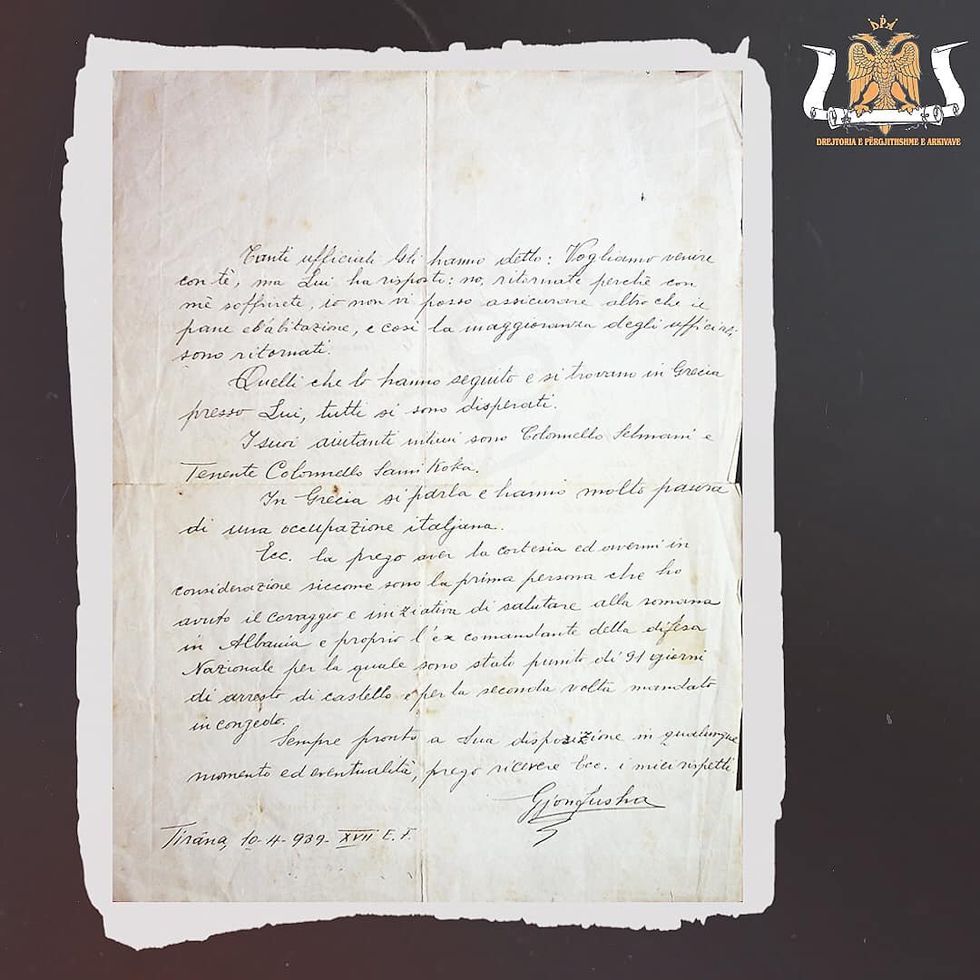 DPA
DREJTORIA E PËRGJITHSHME E ARKIVAVE
Tanti ufficiali Gli hanno detto: Vogliamo venire
con tè, ma Lui ha risposti: no, ritornate perchè con
mè soffrirete, io non vi posso assicurare altro che il
pane ed'abitazione, e così la maggioranza degli ufficiali,
sono ritornati.
Quelli che lo hanno seguito e si trovano in Grecia
presso Lui, tutti si sono disperati.
I suoi aiutanti intimi sono Colonnello Selmani e
Tenente Colonnello Sami Koka.
In Grecia si parla e hanno molto paura
di una occupazione italjana.
Ecc. la prego aver la cortesia ed avermi in
considerazione siccome sono la prima persona che ho
avuto il coraggio e iniziativa di salutare alla romana
in Albania e proprio l'ex comandante della difesa
Nazionale per la quale sono stato punito di 91 giorni
di arresto di castello e per la seconda volta mandato
in congedo.
Sempre pronto a Sua disposizione in qualunque
momento ed eventualità, prego ricevere Ecc. i miei rispetti
Gjon Jusha
Tirana, 10-4-939- XVII E. F.